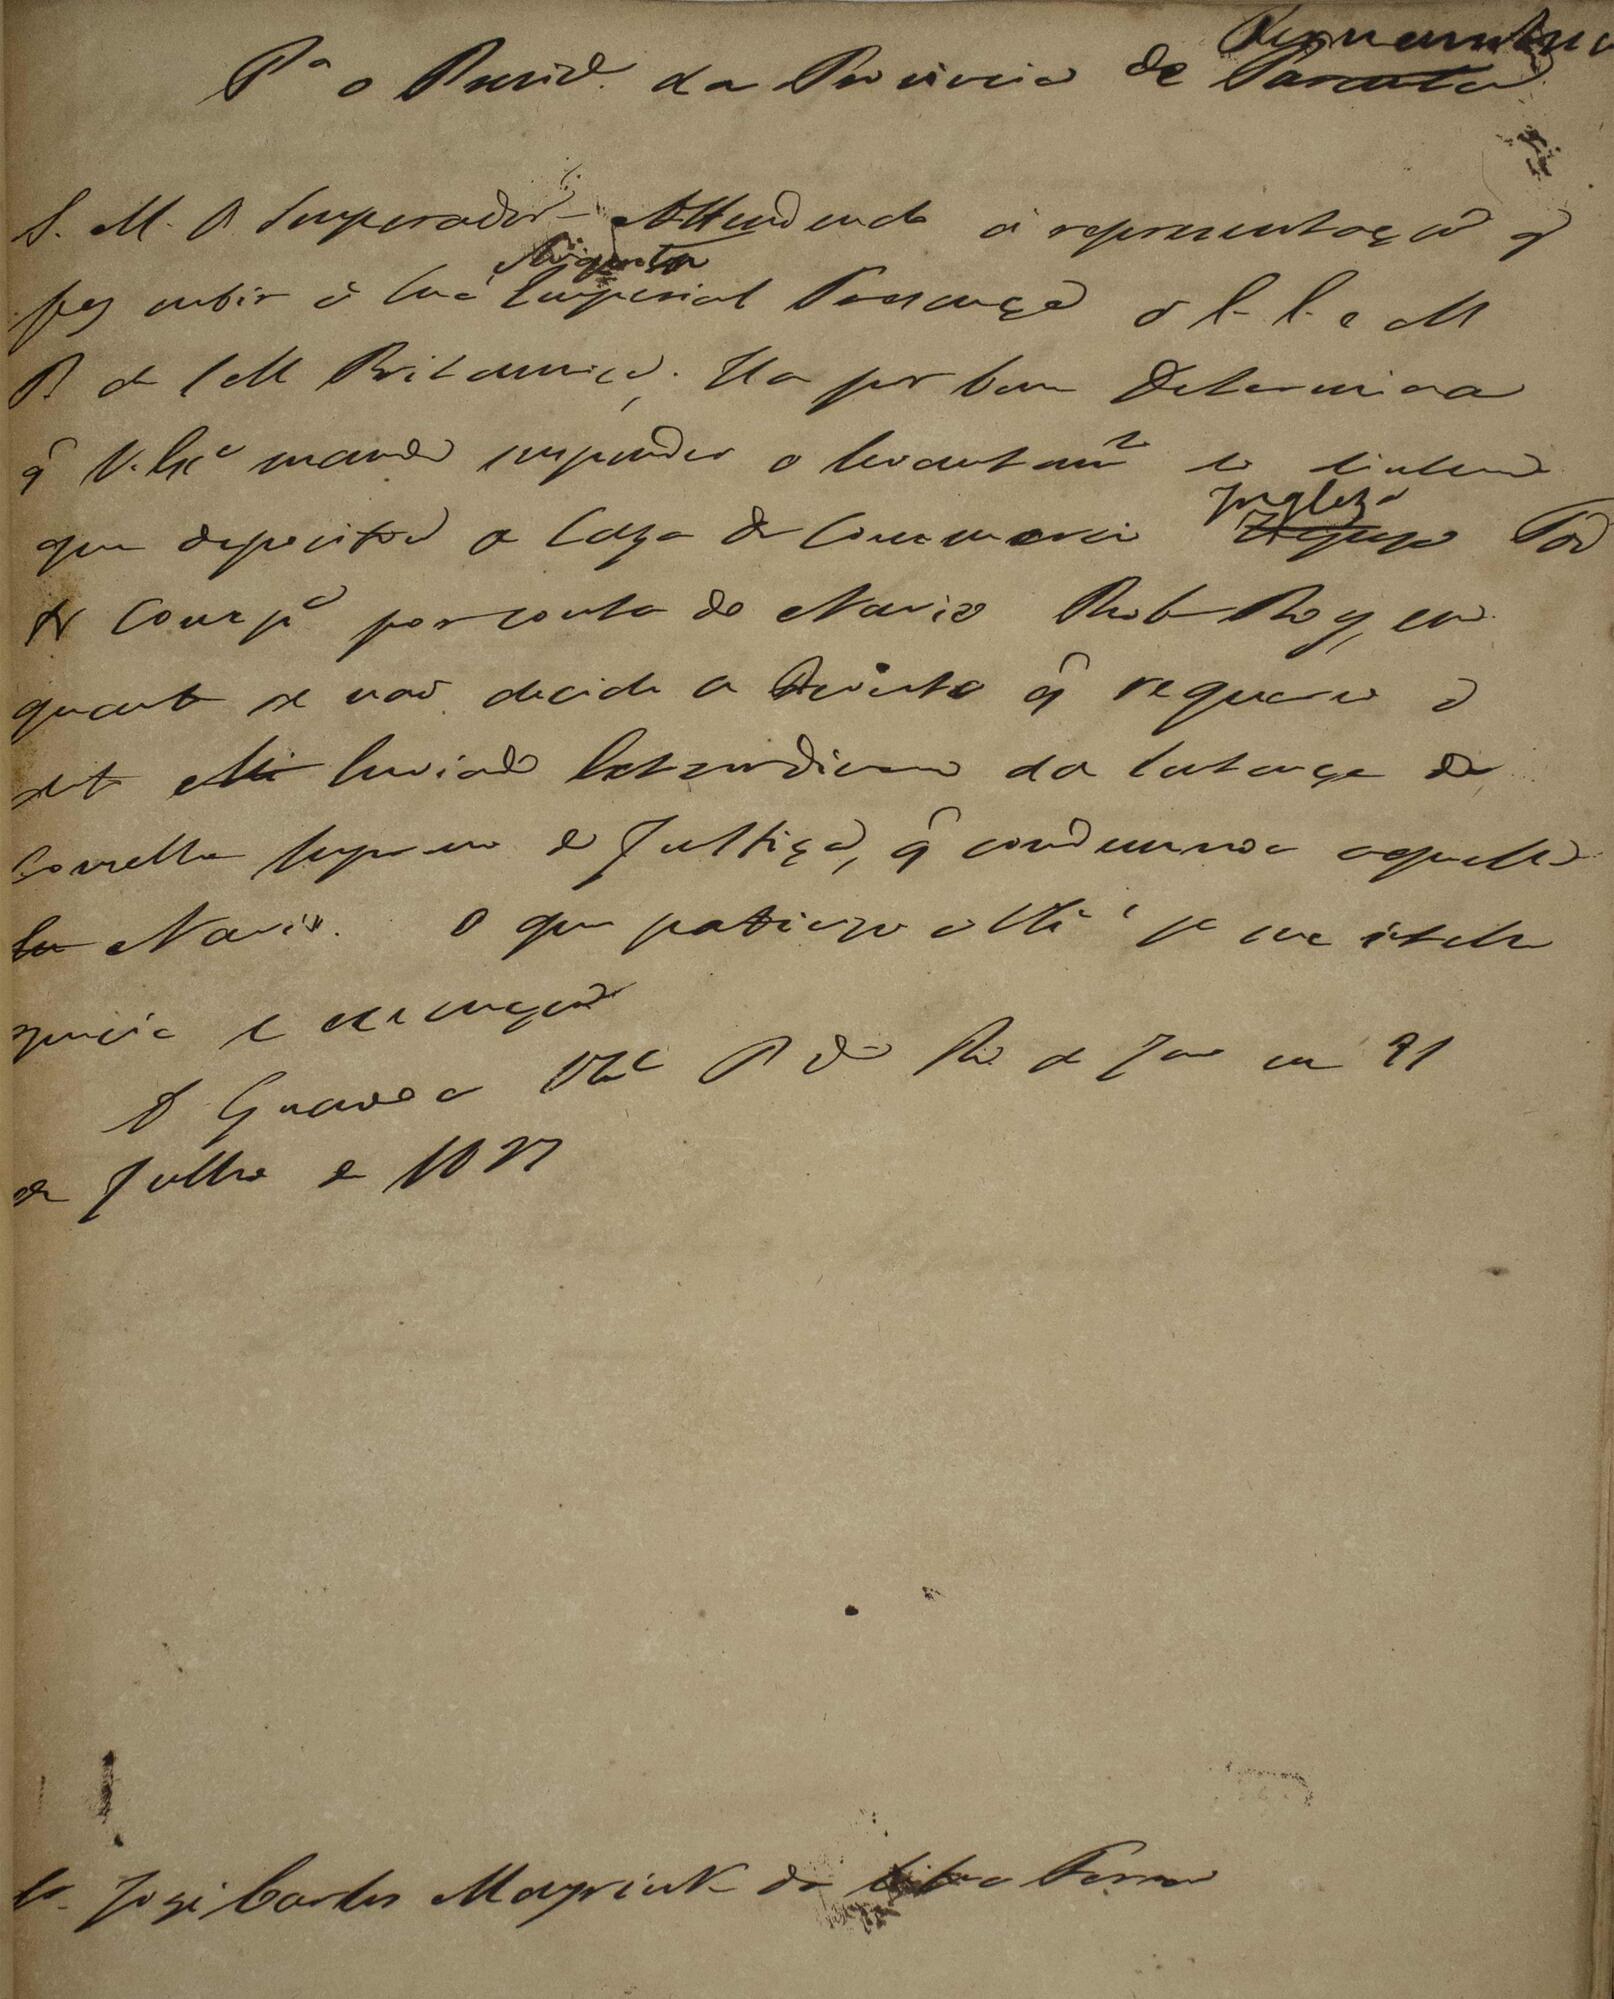 Pernambuco
Pª o Presid.e da Provincia de Parauta
S. M. O Imperador Attendendo á representação q̃
Augusta
fez subir á Sua Imperial Presença o E. E. e M
P de S M Britannica, Ha por bem Determinar
q̃ V. Exª mande suspender o levantamto do dinheiro
que depositou a Caza de Commercio
Ingleza
& Compª por conta do Navio Rob Roy, em
quanto se não decide a Revista q̃ requereo o
dito Enviado Extraordinario da Sentença do
Conselho Supremo de Justiça, q̃ condemnou aquelle
Navio. O que participo a VExª pª sua intelli
gencia e execução
D Guarde a VExª P do Rio de Janro em 21
de Julho de 1827
Sr. José Carlos Mayrink da Silva Ferrão